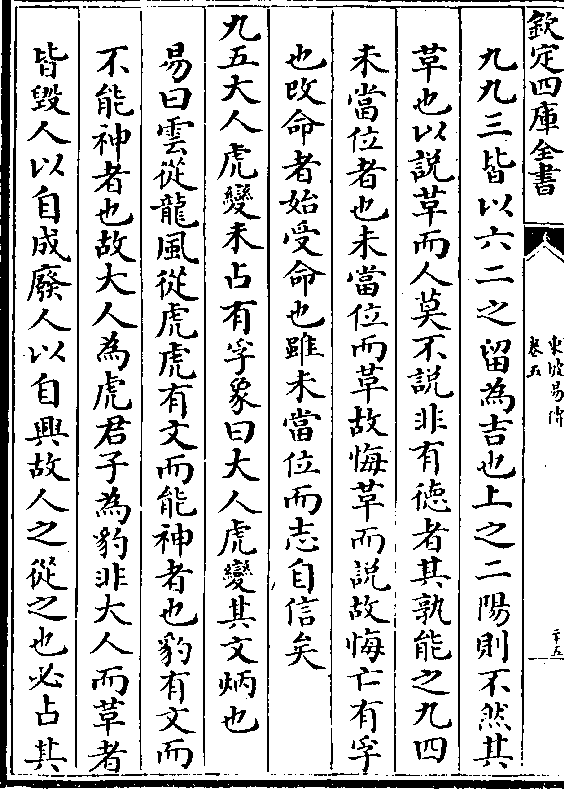 欽定四庫全書
東坡易傳
卷五
二十五
九九三皆以六二之留為吉也上之二陽則不然其
革也以説革而人莫不説非有徳者其孰能之九四
未當位者也未當位而革故悔革而説故悔亡有孚
也改命者始受命也雖未當位而志自信矣
九五大人虎變未占有孚象曰大人虎變其文炳也
易曰雲從龍風從虎虎有文而能神者也豹有文而
不能神者也故大人為虎君子為豹非大人而革者
皆毁人以自成廢人以自興故人之從之也必占其